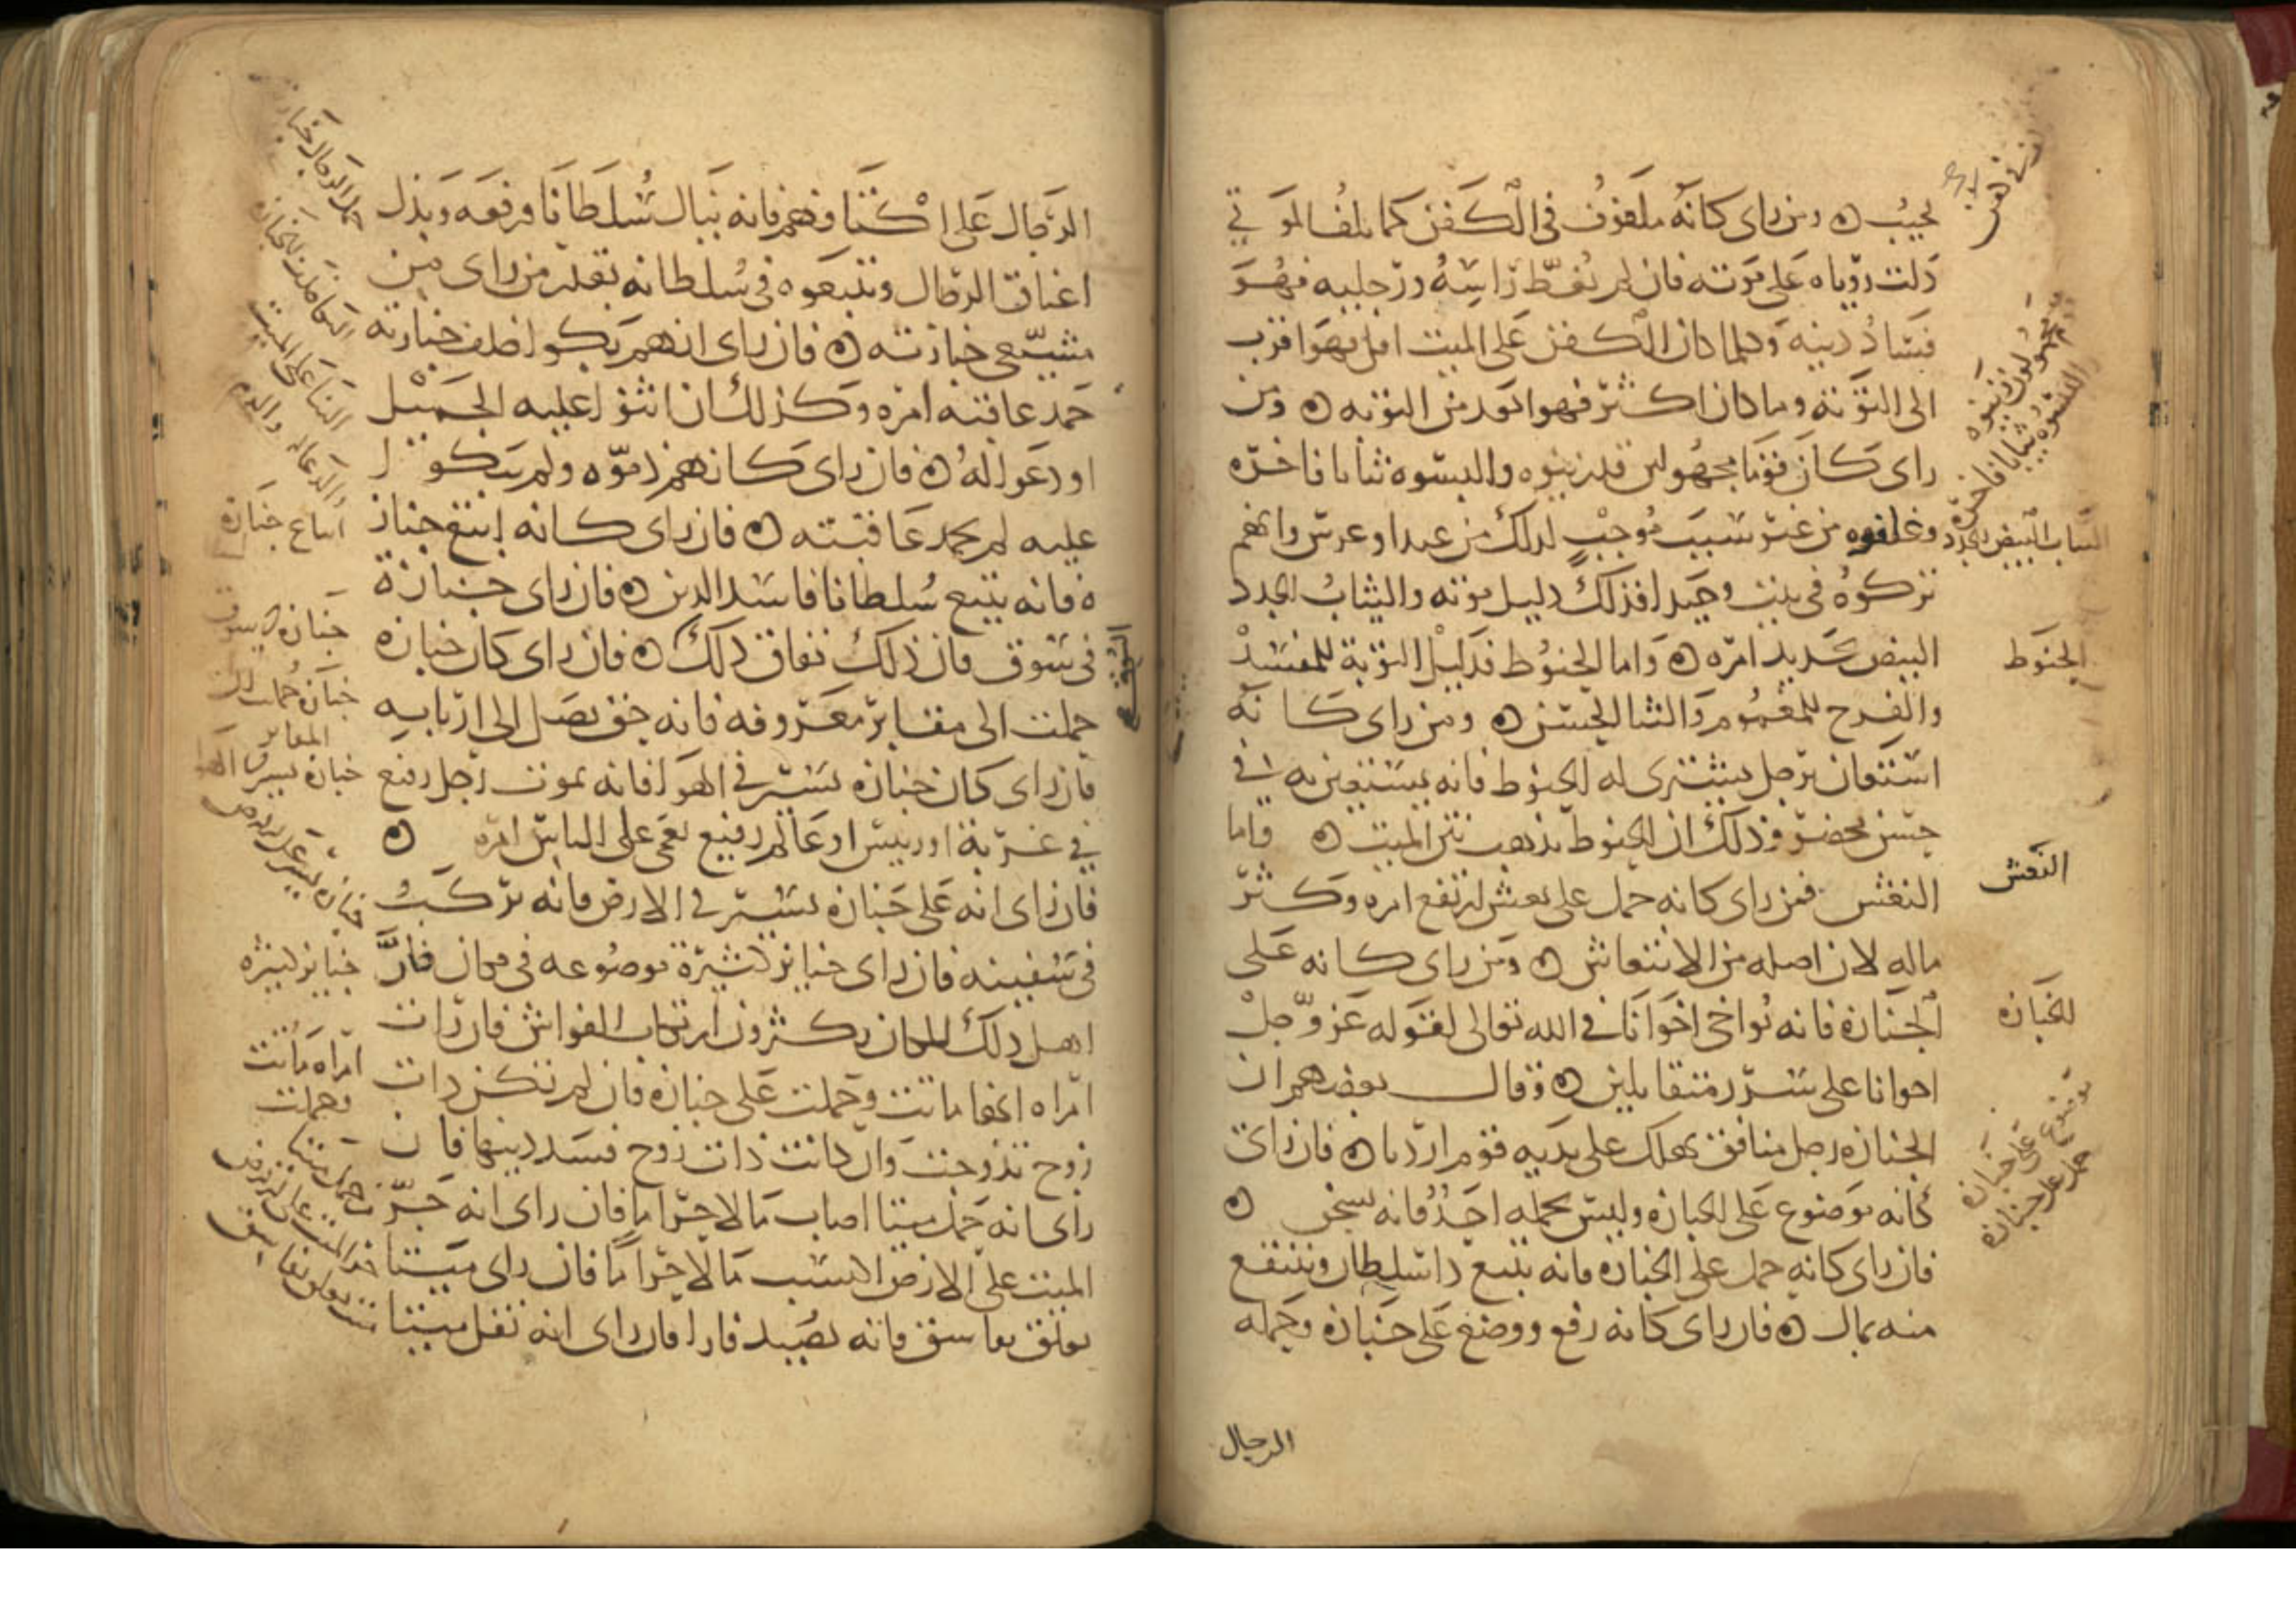 يجيب ه ومن راى كانه ملفوف في الكفن كما يلف الموتي
دلت روياه على موته فان لم يغط راسه ورجليه فهو
فساد دينه وكلما كان الكفن على الميت اقل فهو اقرب
الى التوبة وما كان اكثر فهو ابعد من التوبه ه ومن
راى كان قوما مجهولين قد زينوه والبسوه ثيابا فاخره
من غير سبب موجب لذلك من عيد او عرس وانهم
تركوه في بيت وحيدا فذلك دليل موته والثياب الجدد
البيض تجديد امره ه واما الحنوط فدليل التوبة للمفسد
والفرح للمغموم والثنا الحسن ه ومن راى كانه
استعان برجل يشترى له الحنوط فانه يستعين به في
حسن محضر وذلك ان الحنوط يذهب نتن الميت ه فاما
النعش فمن راى كانه حمل على نعش ارتفع امره وكثر
ماله لان اصله من الانتعاش ه ومن راى كانه على
الجنازة فانه يواخى اخوانا في الله تعالى لقوله عز وجل
اخوانا على سرر متقابلين ه وقال بعضهم ان
الجنازه رجل منافق يهلك على يديه قوم ارديا ه فان راى
كانه موضوع على الجنازه وليس يحمله احد فانه يسجن ه
فان راى كانه حمل على الجنازه فانه يتبع ذا سلطان وينتفع
منه بمال ه فان راى كانه رفع ووضع على جنازه وحمله
الرجال
الثياب البيض الجدد
الحنوط
النعش
الجنازه
موضوع على جنازه
حمل على جنازه
الرجال على اكتافهم فانه ينال سلطانا ورفعه ويذل
اعناق الرجال ويتبعوه في سلطانه بقدر من راى من
مشيعى جنازته ه فان راى انهم بكوا خلف جنازته
حمد عاقبة امره وكذلك ان اثنوا عليه الجميل
او دعوا له ه فان راى كانهم ذموه ولم يبكوا
عليه لم يحمد عاقبته ه فان راى كانه اتبع جناز
ه فانه يتبع سلطانا فاسد الدين ه فان راى جنازة
في سوق فان ذلك نفاق ذلك ه فان راى كان جنازه
حملت الى مقابر معروفه فانه حق يصل الى اربابه
فان راى كان جنازه تسير في الهوا فانه يموت رجل رفيع
في غربة او رييس او عالم رفيع يعمى على الناس امره ه
فان راى انه على جنازه تسير في الارض فانه يركب
في سفينه فان راى جنايز كثيرة موضوعه في مكان فان
اهل ذلك المكان يكثرون ارتكاب الفواحش فان رات
امراه انها ماتت وحملت على جنازه فان لم تكن ذات
زوج تزوجت وان كانت ذات زوج فسد دينها فان
راى انه حمل ميتا اصاب مالا حراما فان راى انه جر
الميت على الارض اكتسب مالا حراما فان راى ميتا
يعلق بعاسق فانه يصيد فارا فان راى انه نقل ميتا
السوق
الثنا على الميت
والدعا له والذم
اتباع جنازه
جنازه في سوق
جنازه حملت الى
المقابر
جنازه تسير في الهوا
جنازه تسير على الارض
جنايز كثيره
امراه ماتت
وحملت